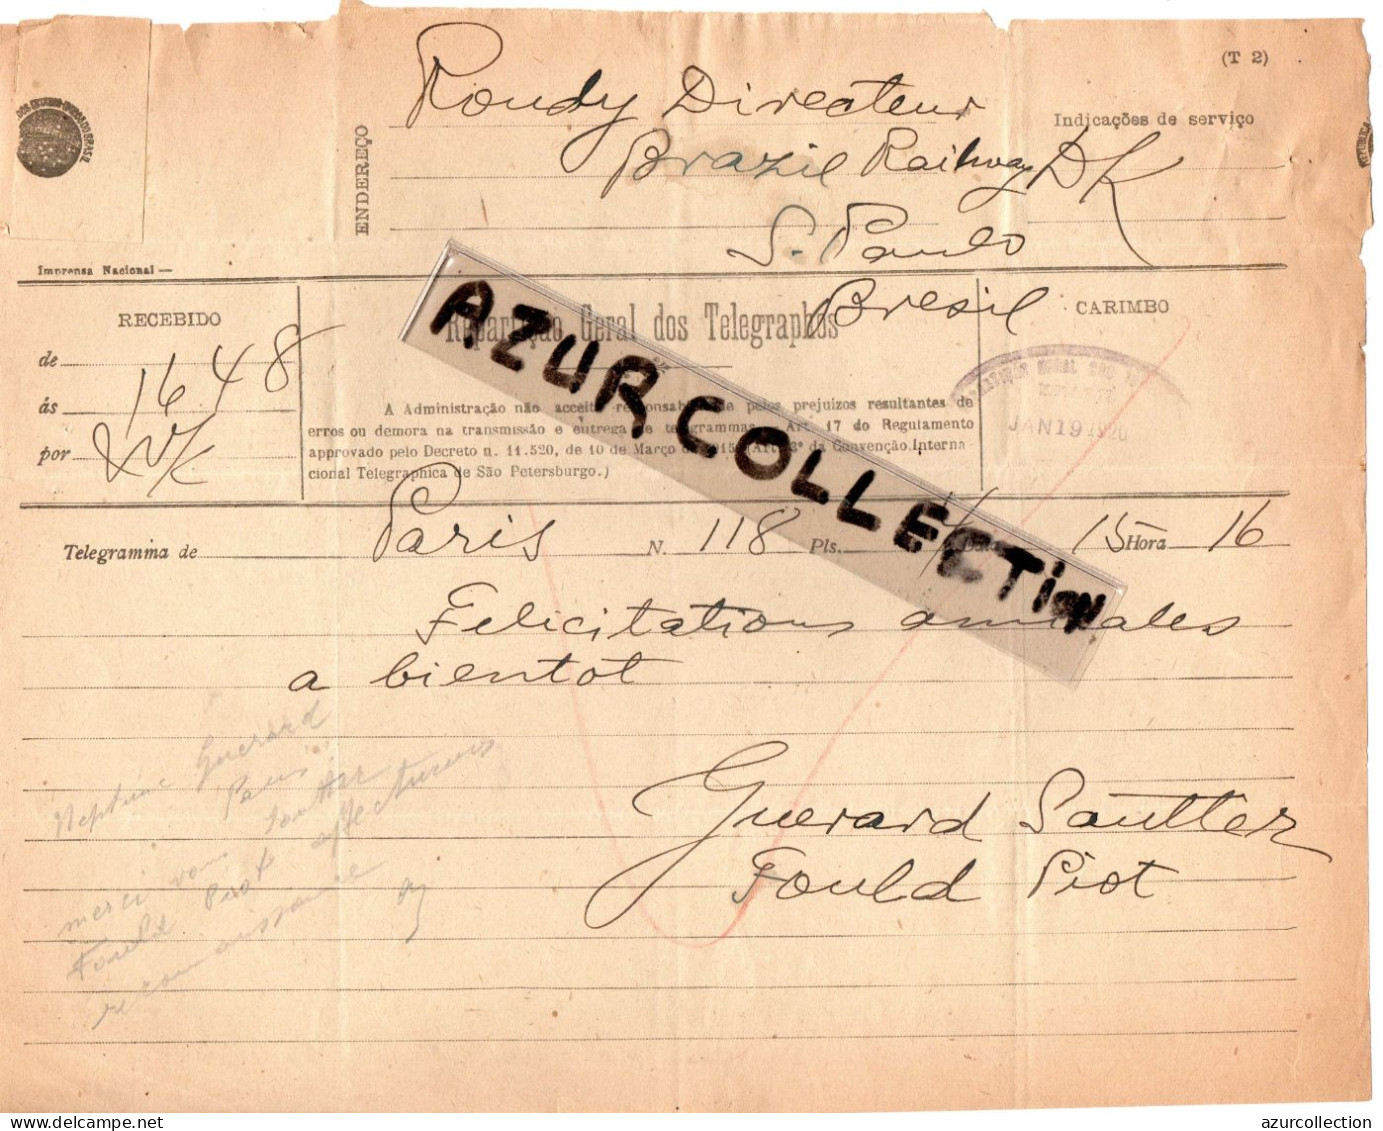 (T 2)
ENDEREÇO
Roudy Directeur
Indicações de serviço
Brazil Railway DK
S. Paulo
Bresil
Imprensa Nacional —
RECEBIDO
de 16 48
ás
por
Repartição Geral dos Telegraphos
A Administração não acceita responsabilidade pelos prejuizos resultantes de
erros ou demora na transmissão e entrega de telegrammas. Art. 17 do Regulamento
approvado pelo Decreto n. 11.520, de 10 de Março de 1915 (Art. 3º da Convenção Interna-
cional Telegraphica de São Petersburgo.)
CARIMBO
JAN 19 1920
AZUR COLLECTION
Telegramma de Paris N. 118 Pls. Data 15 Hora 16
Felicitations amicales
a bientot
Guerard Sautter
Fould Piot
Neptune Guerard
Paris
merci vous Sautter
Fould Piot affectueuses
reconnaissance
azurcollection